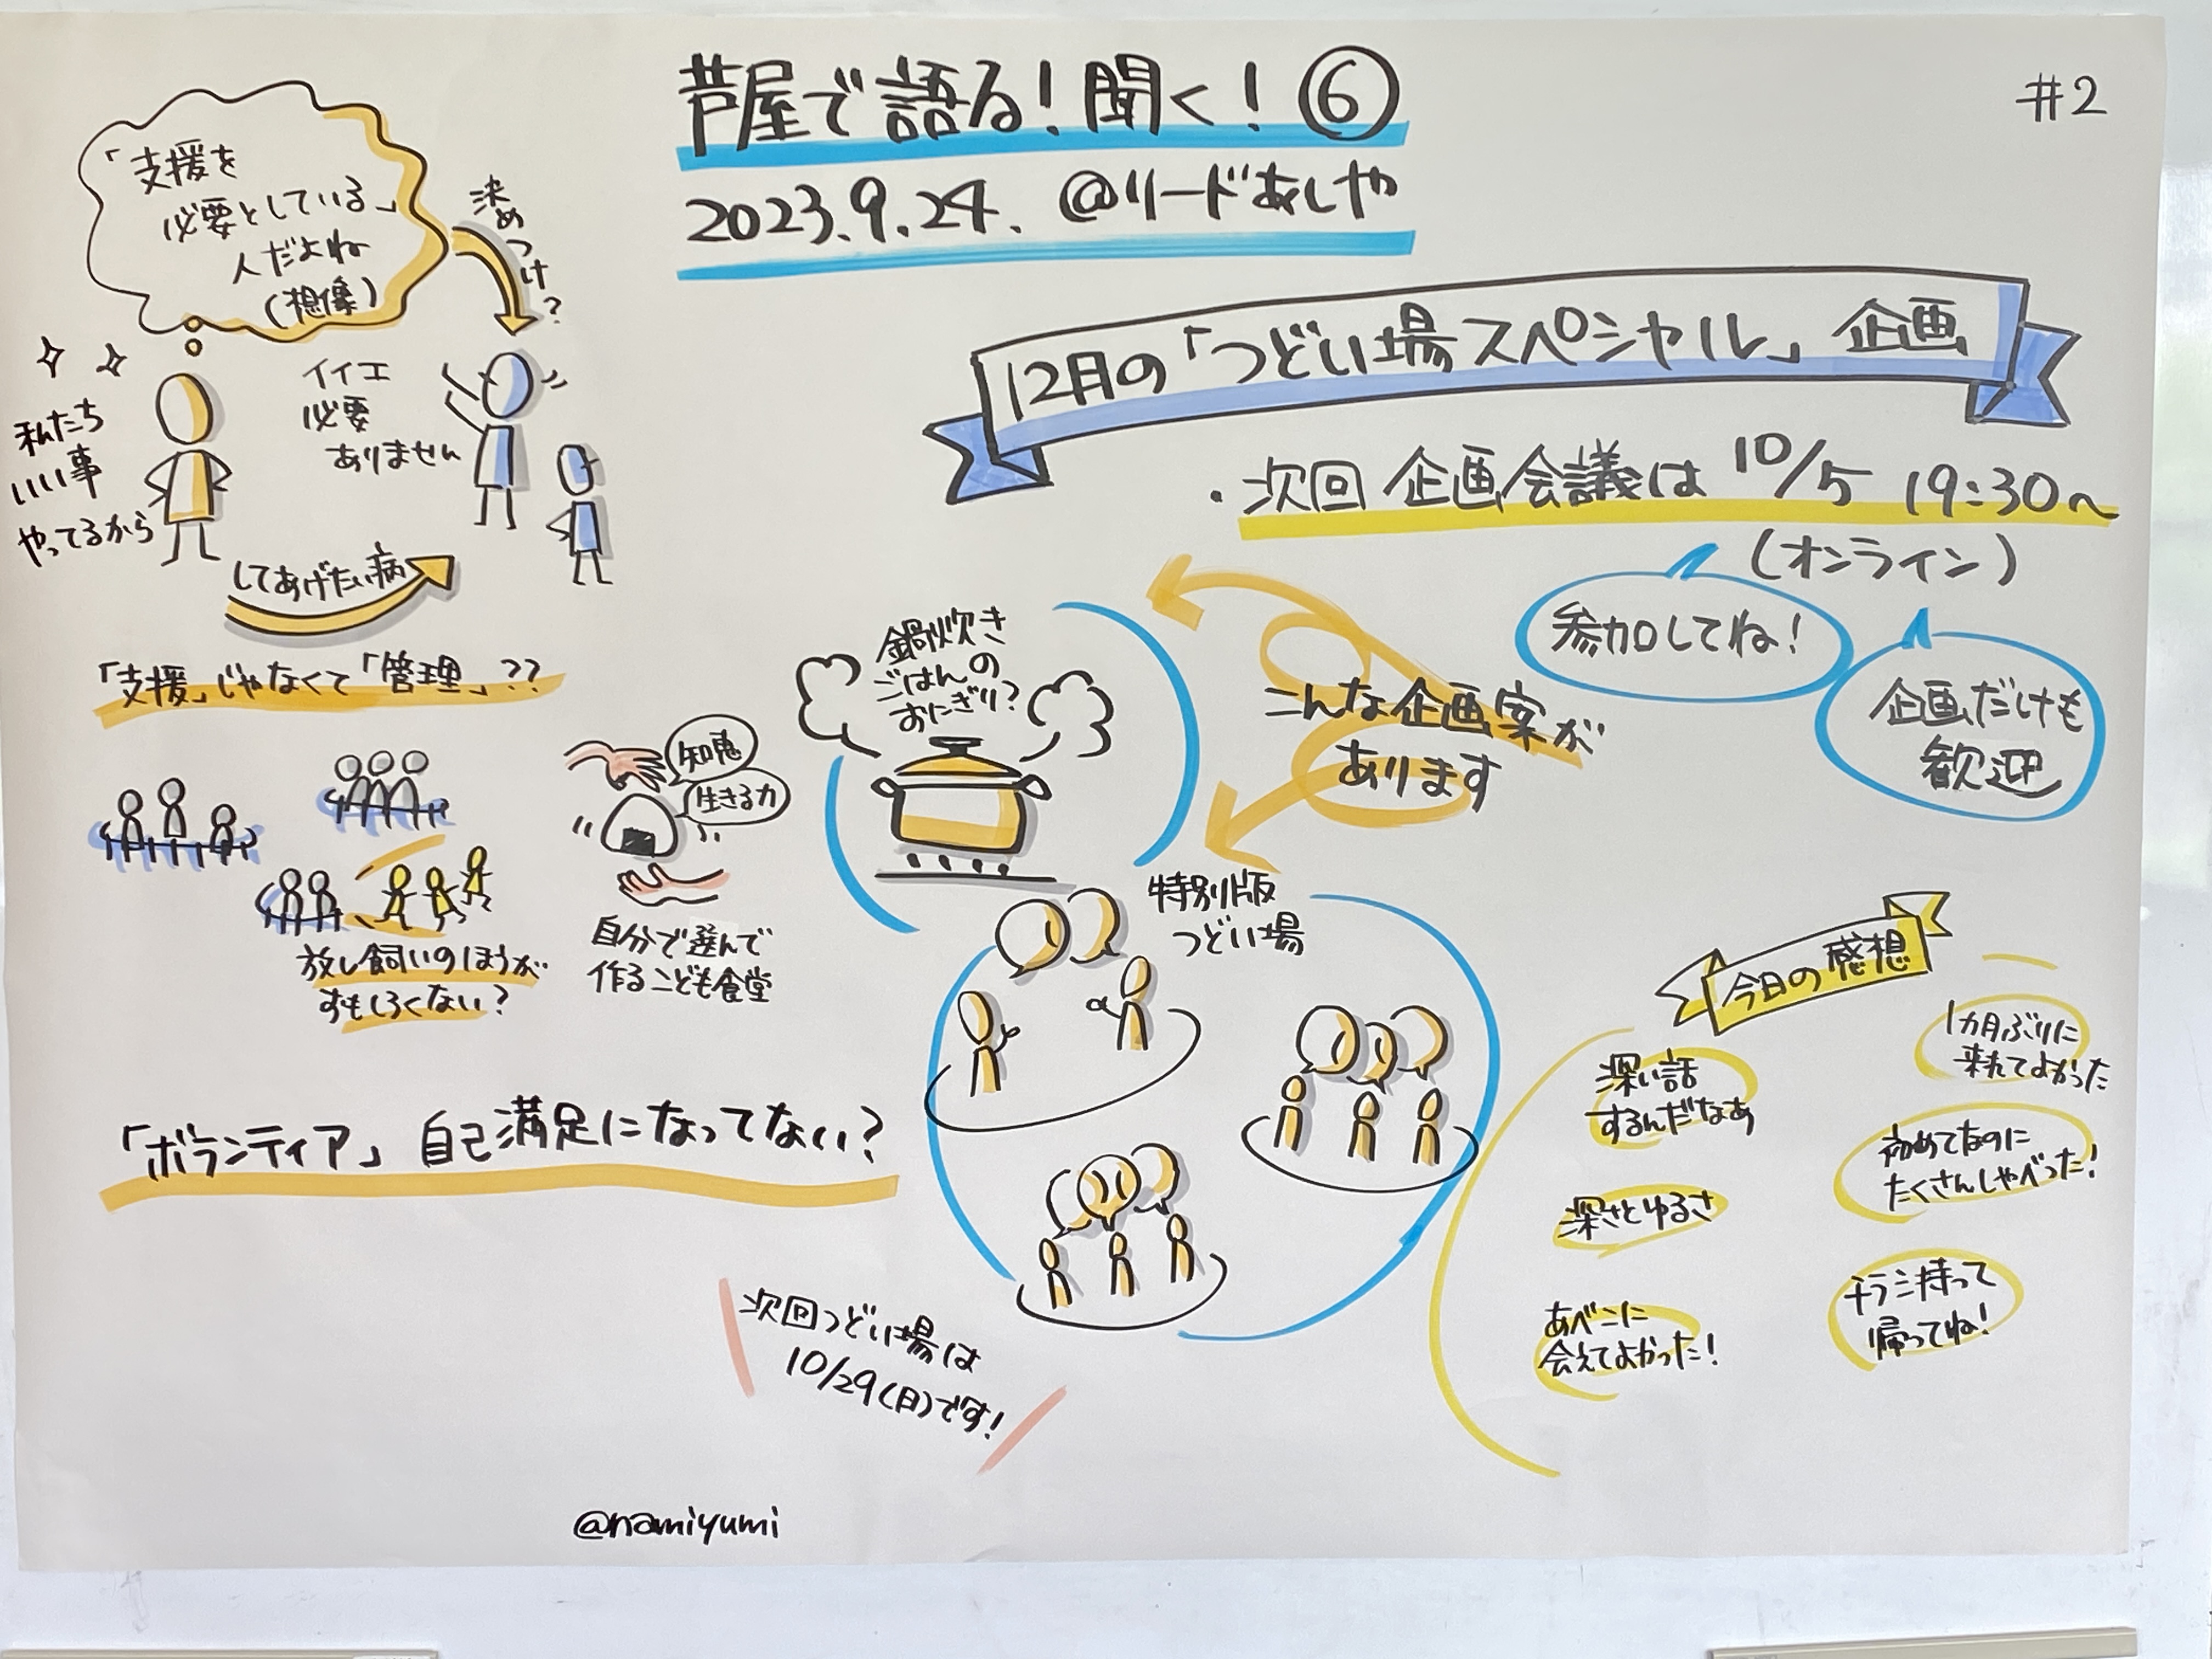 芦屋で語る!聞く!⑥
#2
2023.9.24. @リードあしや
「支援を
必要としている」
人だよね
(想像)
決めつけ?
私たち
いい事
やってるから
イイエ
必要
ありません
してあげたい病
「支援」じゃなくて「管理」??
放し飼いのほうが
すもしろくない?
知恵
生きる力
自分で選んで
作るこども食堂
「ボランティア」自己満足になってない?
12月の「つどい場スペシャル」企画
・次回 企画会議は 10/5 19:30〜
(オンライン)
参加してね!
企画だけも
歓迎
こんな企画案が
あります
鍋炊き
ごはんの
おにぎり?
特別版
つどい場
次回つどい場は
10/29(日)です!
今日の感想
深い話
するんだなあ
深さとゆるさ
あべこに
会えてよかった!
1カ月ぶりに
来れてよかった
初めてなのに
たくさんしゃべった!
チラシ持って
帰ってね!
@namiyumi